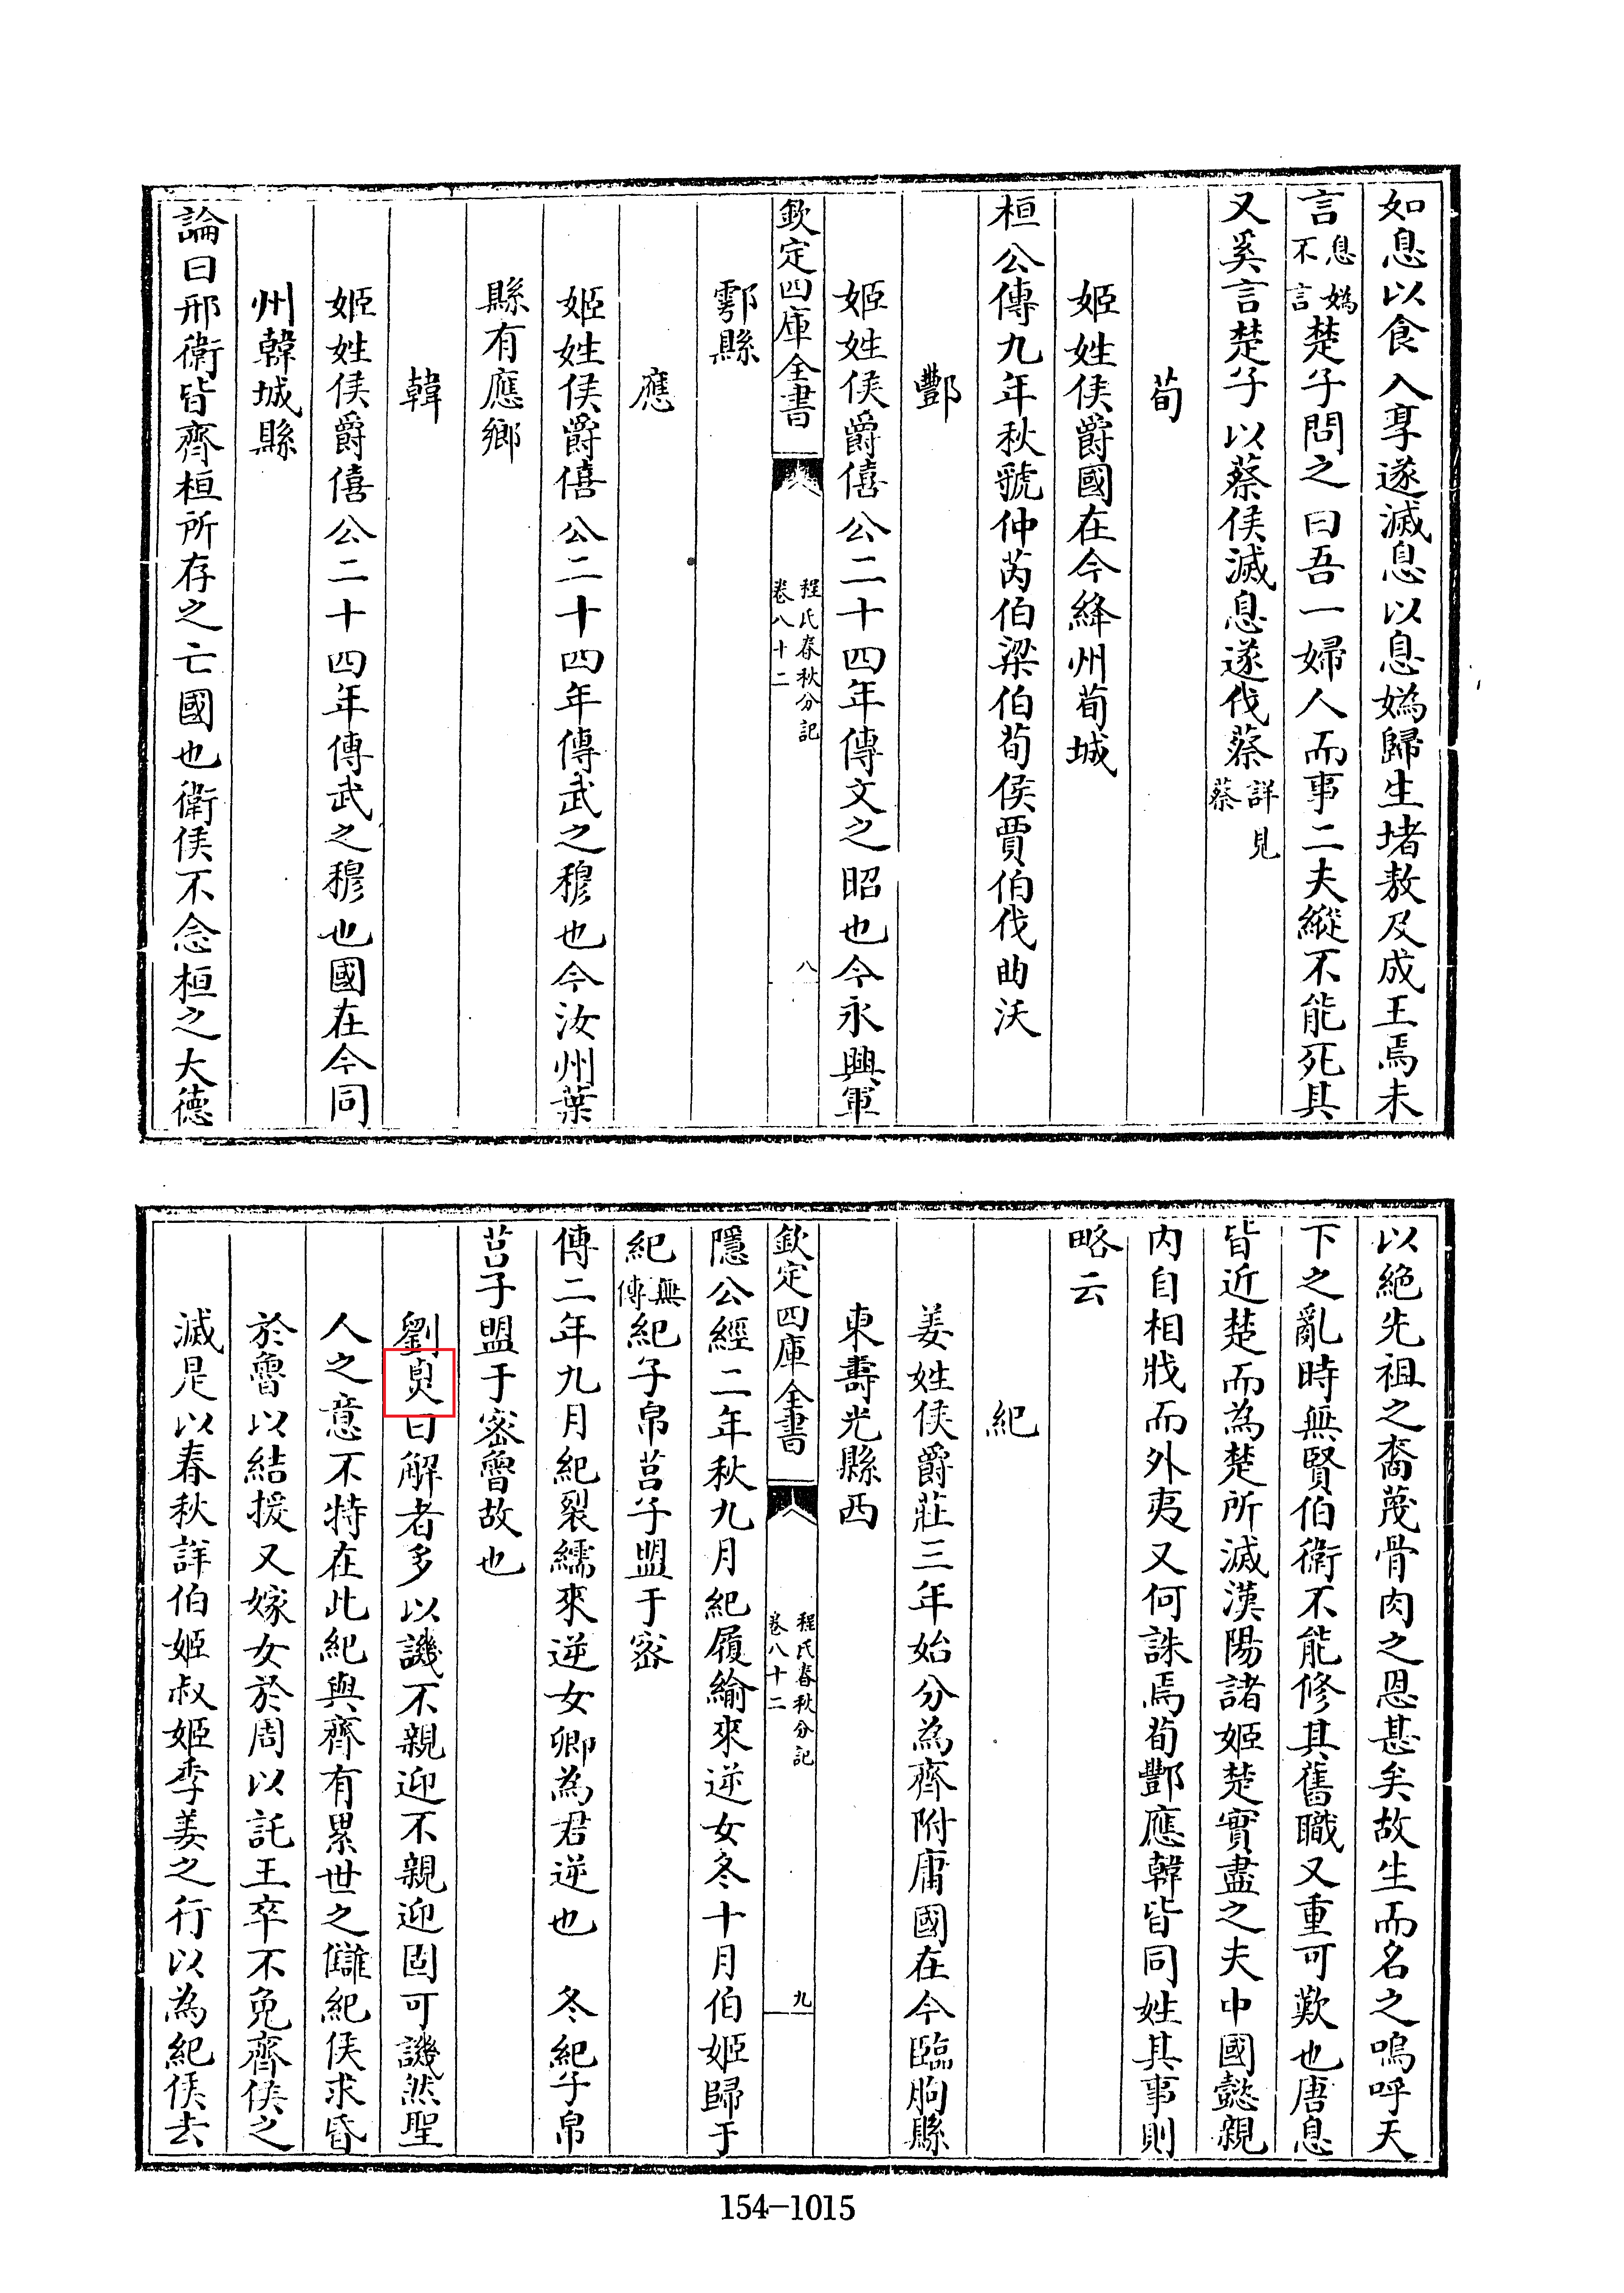 如息以食入享遂滅息以息媯歸生堵敖及成王焉未
言息媯不言楚子問之曰吾一婦人而事二夫縱不能死其
又奚言楚子以蔡侯滅息遂伐蔡詳見蔡
荀
姬姓侯爵國在今絳州荀城
桓公傳九年秋虢仲芮伯梁伯荀侯賈伯伐曲沃
酆
姬姓侯爵僖公二十四年傳文之昭也今永興軍
欽定四庫全書 程氏春秋分記 卷八十二 八
鄠縣
應
姬姓侯爵僖公二十四年傳武之穆也今汝州葉
縣有應鄉
韓
姬姓侯爵僖公二十四年傳武之穆也國在今同
州韓城縣
論曰邢衛皆齊桓所存之亡國也衛侯不念桓之大德
以絶先祖之裔蔑骨肉之恩甚矣故生而名之嗚呼天
下之亂時無賢伯衛不能修其舊職又重可歎也唐息
皆近楚而為楚所滅漢陽諸姬楚實盡之夫中國懿親
内自相戕而外夷又何誅焉荀酆應韓皆同姓其事則
略云
紀
姜姓侯爵莊三年始分為齊附庸國在今臨朐縣
東壽光縣西
欽定四庫全書 程氏春秋分記 卷八十二 九
隱公經二年秋九月紀履緰來逆女冬十月伯姬歸于
紀無傳紀子帛莒子盟于密
傳二年九月紀裂繻來逆女卿為君逆也 冬紀子帛
莒子盟于密魯故也
劉曰解者多以譏不親迎不親迎固可譏然聖
人之意不特在此紀與齊有累世之讎紀侯求昏
於魯以結援又嫁女於周以託王卒不免齊侯之
滅是以春秋詳伯姬叔姬季姜之行以為紀侯去
154-1015